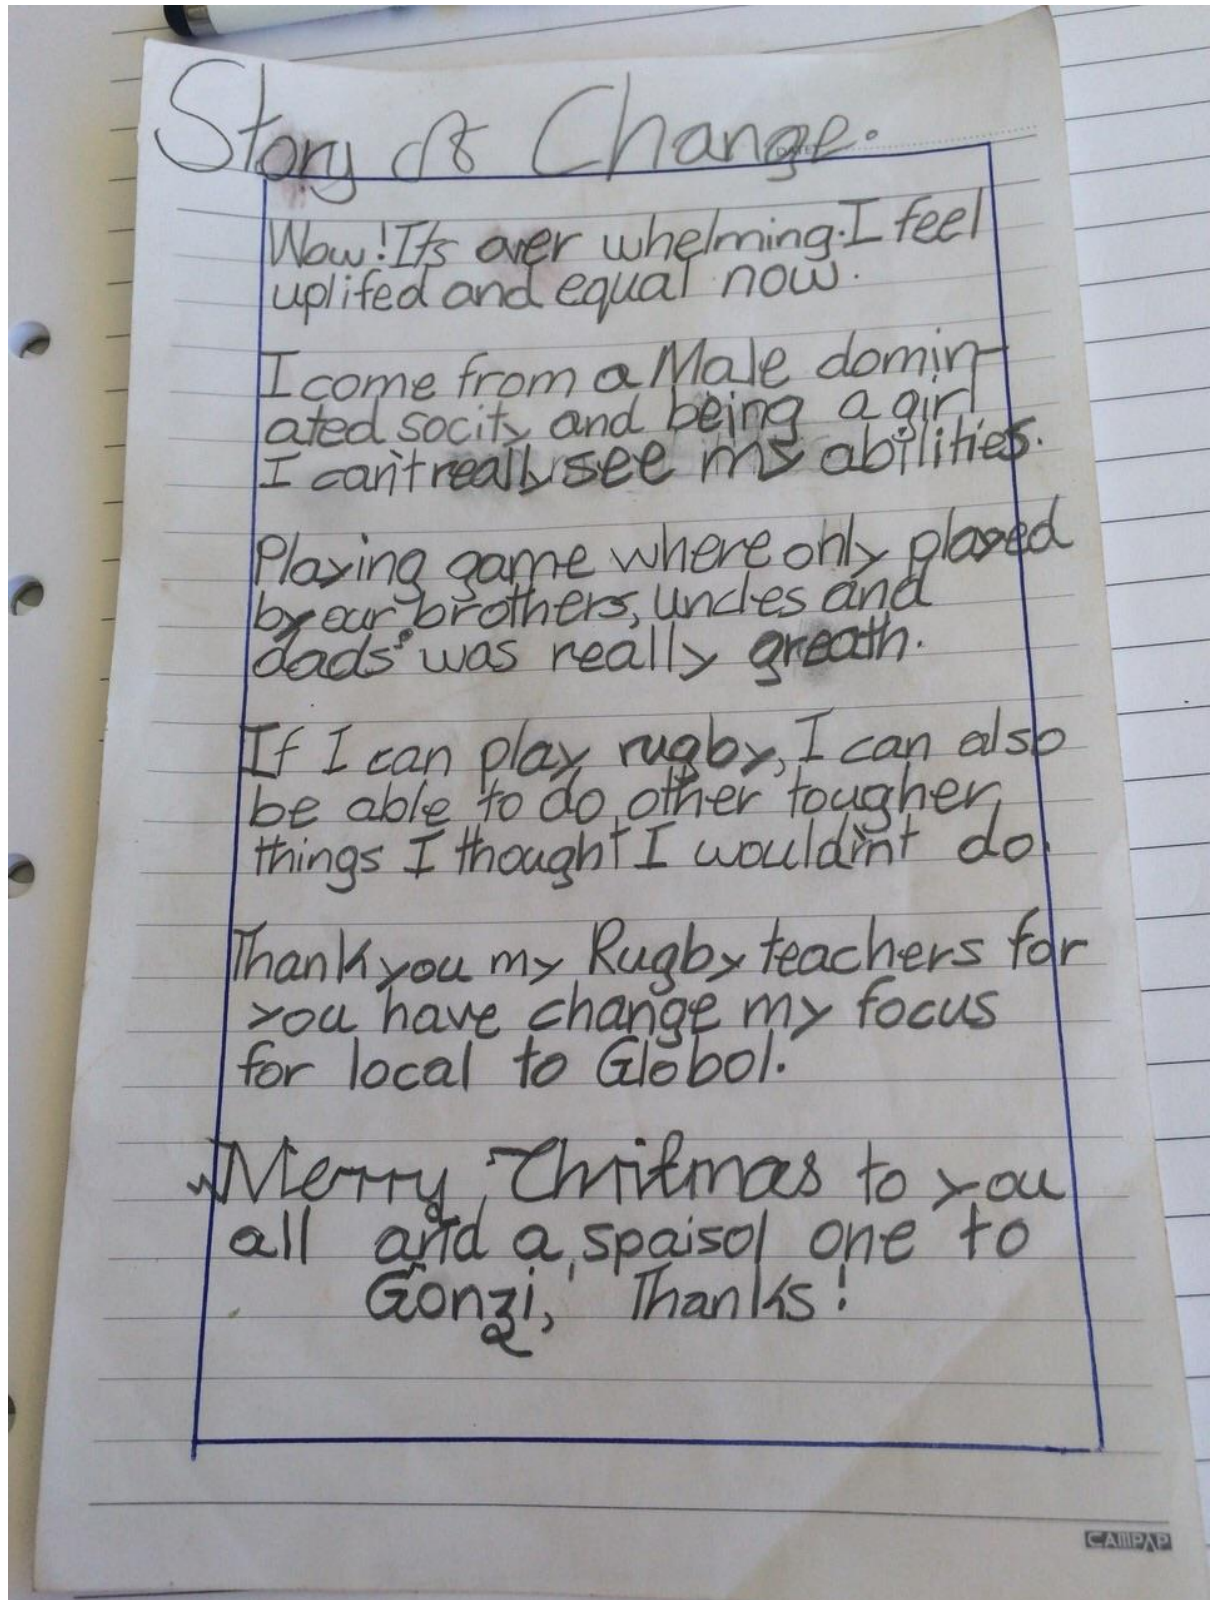 Story of Change.
DATE
Wow! Its over whelming. I feel
uplifed and equal now.
I come from a Male domin-
ated socity and being a girl
I can't really see my abilities.
Playing game where only played
by our brothers, uncles and
dads' was really greath.
If I can play rugby, I can also
be able to do other tougher
things I thought I wouldin't do.
Thank you my Rugby teachers for
you have change my focus
for local to Globol.
Merry Chritmas to you
all and a spaisol one to
Gonzi, Thanks!
CAMPAP